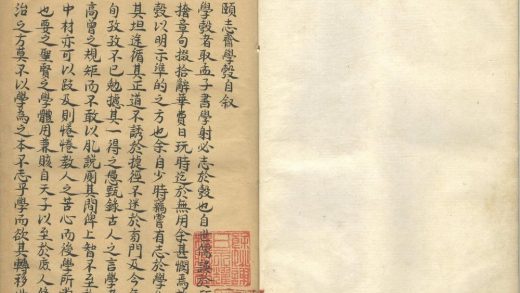 頤志齋學彀自叙
學彀者取孟子書學射必志於彀也自世儒誤於
捨章句掇拾辭華費日玩時迄於無用余甚憫焉
彀以明示準的之方也余自少時竊嘗有志於學
其坦途循其正道不誘於捷徑不迷於旁門及今年
旬孜孜不已勉攄其一得之愚甄錄古人之言學
高曾之規矩而不敢以肊說廁其間俾上智不至
中材亦可以跂及則惓惓教人之苦心而後學所
也要之聖賢之學體用兼賅自天子以至於庶人
治之方莫不以學為之本不志乎學而欲其轉移